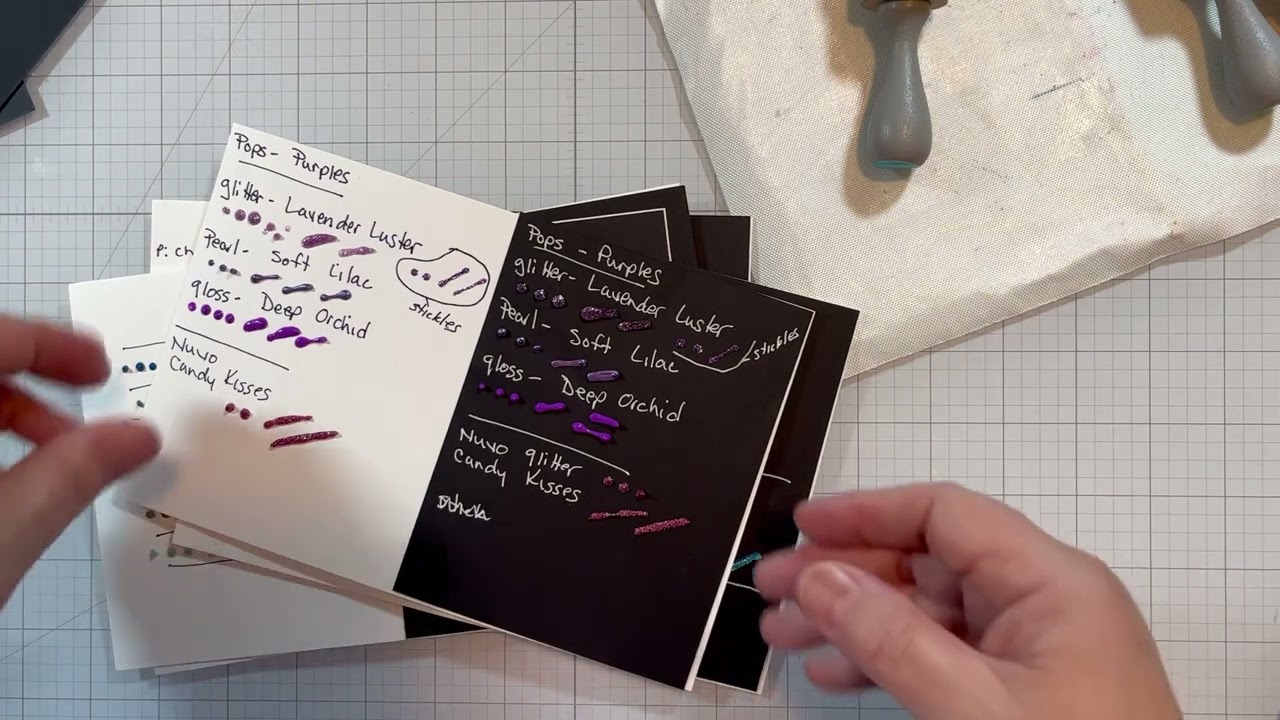 Pops - Purples
glitter - Lavender Luster
Pearl - Soft Lilac
stickles
gloss - Deep Orchid
Nuvo
Candy Kisses
P: ch
Pops - Purples
glitter - Lavender Luster
stickles
Pearl - Soft Lilac
gloss - Deep Orchid
Nuvo glitter
Candy Kisses